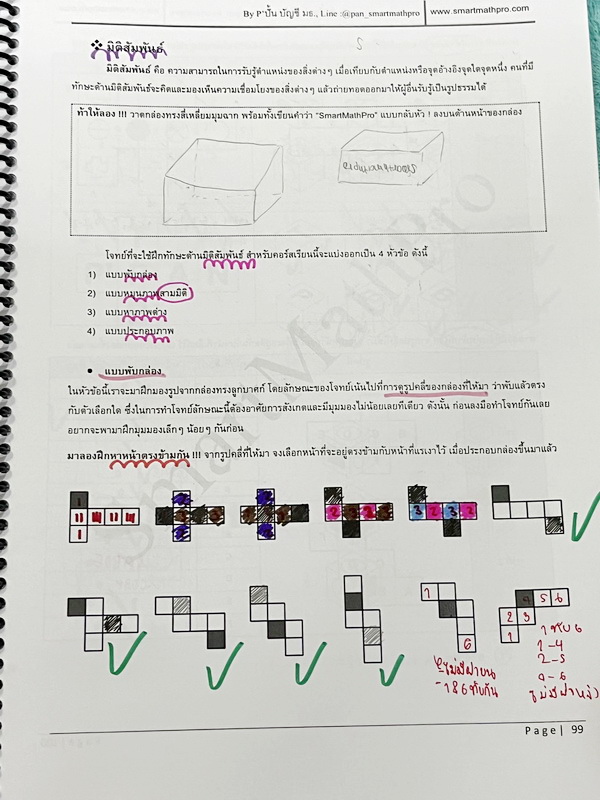 By P'ปั้น บัญชี มธ., Line :@pan_smartmathpro
www.smartmathpro.com
❖ มิติสัมพันธ์
มิติสัมพันธ์ คือ ความสามารถในการรับรู้ตำแหน่งของสิ่งต่างๆ เมื่อเทียบกับตำแหน่งหรือจุดอ้างอิงจุดใดจุดหนึ่ง คนที่มี
ทักษะด้านมิติสัมพันธ์จะคิดและมองเห็นความเชื่อมโยงของสิ่งต่างๆ แล้วถ่ายทอดออกมาให้ผู้อื่นรับรู้เป็นรูปธรรมได้
ท้าให้ลอง !!! วาดกล่องทรงสี่เหลี่ยมมุมฉาก พร้อมทั้งเขียนคำว่า "SmartMathPro" แบบกลับหัว ! ลงบนด้านหน้าของกล่อง
โจทย์ที่จะใช้ฝึกทักษะด้านมิติสัมพันธ์ สำหรับคอร์สเรียนนี้จะแบ่งออกเป็น 4 หัวข้อ ดังนี้
1) แบบพับกล่อง
2) แบบหมุนภาพสามมิติ
3) แบบหาภาพต่าง
4) แบบประกอบภาพ
• แบบพับกล่อง
ในหัวข้อนี้เราจะมาฝึกมองรูปจากกล่องทรงลูกบาศก์ โดยลักษณะของโจทย์เน้นไปที่การดูรูปคลี่ของกล่องที่ให้มา ว่าพับแล้วตรง
กับตัวเลือกใด ซึ่งในการทำโจทย์ลักษณะนี้ต้องอาศัยการสังเกตและมีมุมมองไม่น้อยเลยทีเดียว ดังนั้น ก่อนลงมือทำโจทย์กันเลย
อยากจะพามาฝึกมุมมองเล็กๆ น้อยๆ กันก่อน
มาลองฝึกหาหน้าตรงข้ามกัน !!! จากรูปคลี่ที่ให้มา จงเลือกหน้าที่จะอยู่ตรงข้ามกับหน้าที่แรเงาไว้ เมื่อประกอบกล่องขึ้นมาแล้ว
1
1
2 3 2 3
3 2 3 2
1
6
4 5 6
2 3
1
ไม่มีฝาบน
1 & 6 ทับกัน
1 ทับ 6
1-4
2-5
Page | 99
SmartMathPro